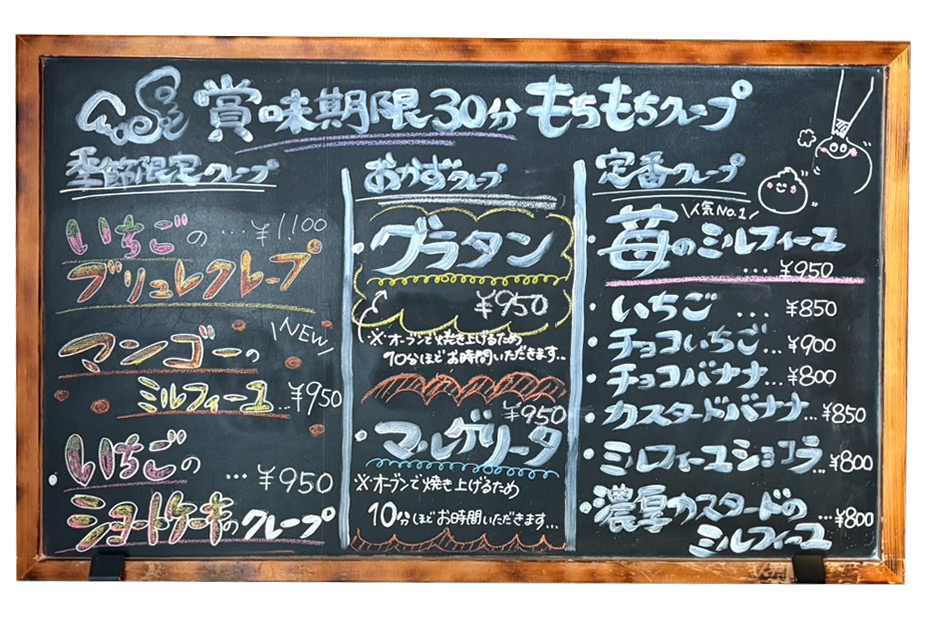 賞味期限30分もちもちクレープ
季節限定クレープ
いちごの …¥1,100
ブリュレクレープ
NEW
マンゴーの
ミルフィーユ…¥950
いちごの …¥950
ショートケーキのクレープ
おかずクレープ
・グラタン
¥950
※オーブンで焼き上げるため
10分ほどお時間いただきます…
¥950
・マルゲリータ
※オーブンで焼き上げるため
10分ほどお時間いただきます…
定番クレープ
人気No.1
・苺のミルフィーユ
…¥950
・いちご …¥850
・チョコいちご…¥900
・チョコバナナ…¥800
・カスタードバナナ…¥850
・ミルフィーユショコラ…¥800
・濃厚カスタードの …¥800
ミルフィーユ